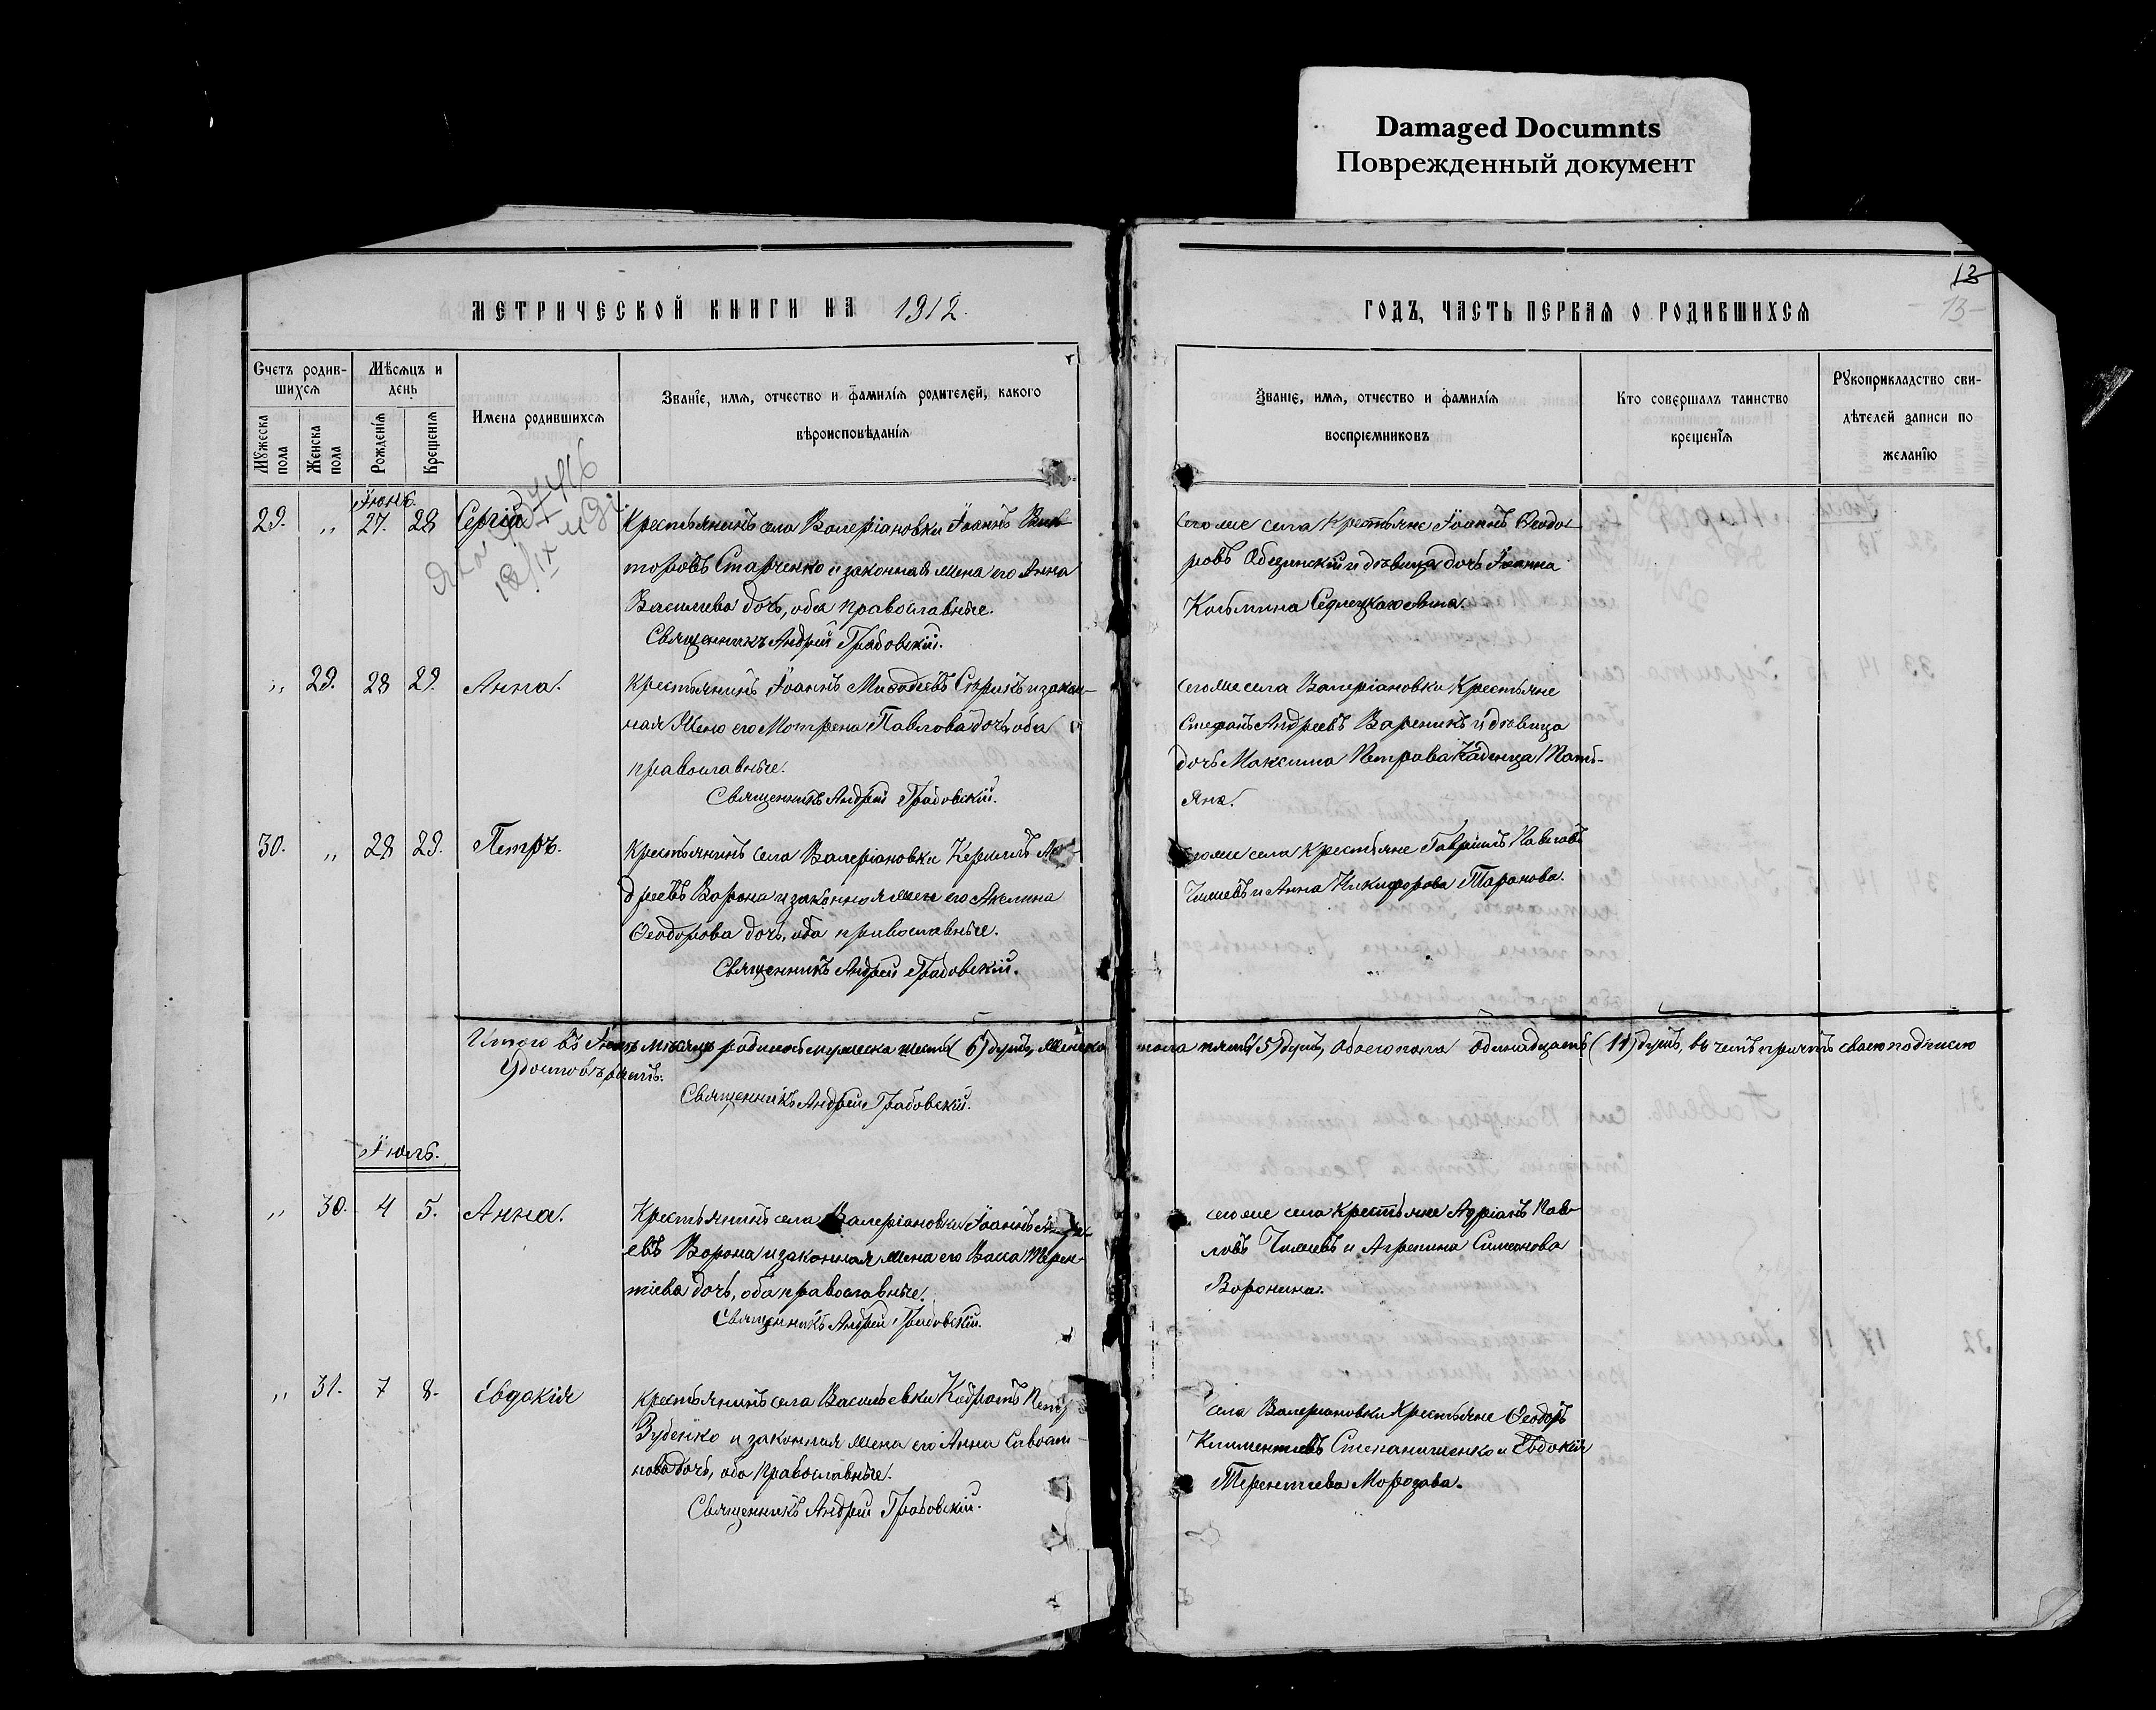 Damaged Documnts
Поврежденный документ
13
МЕТРИЧЕСКОЙ КНИГИ НА 1912.
ГОДЪ, ЧАСТЬ ПЕРВАЯ О РОДИВШИХСЯ
13-
Счетъ родив-
шихся
Мѣсяцъ и
день
Мужеска
пола
Женска
пола
Рожденія
Крещенія
Имена родившихся
Званіе, имя, отчество и фамилія родителей, какого
вѣроисповѣданія
Званіе, имя, отчество и фамилія
воспріемниковъ
Кто совершалъ таинство
крещенія
Рукоприкладство сви-
дѣтелей записи по
желанію
Іюнь.
29. „ 27. 28 Сергій
18/IX
Крестьянинъ села Валеріановки Іоаннъ Вик-
торовъ Ставченко и законная жена его Анна
Васильева дочь, оба православные.
Священникъ Андрей Грабовскій.
сего же села крестьяне Іоаннъ Ѳеодо-
ровъ и дѣвица дочь
Косьмина
„ 29. 28 29. Анна.
Крестьянинъ Іоаннъ и закон-
ная жена его Мотрена Павлова дочь, оба
православные.
Священникъ Андрей Грабовскій.
сего же села Валеріановки крестьяне
Стефанъ Андреевъ Вареникъ и дѣвица
дочь Максима Петрова Каденца Тать-
яна.
30. „ 28 29. Петръ.
Крестьянинъ села Валеріановки Кириллъ Ан-
дреевъ Ворона и законная жена его Акелина
Ѳеодорова дочь, оба православные.
Священникъ Андрей Грабовскій.
сего же села крестьяне Гавріилъ Павловъ
Чижевъ и Анна Никифорова Таранова.
Итого въ Іюнѣ мѣсяцѣ родилось мужеска шесть (6) душъ, женска пола пять (5) душъ, обоего пола одинадцать (11) душъ, въ чемъ причтъ своею подписью
удостовѣряетъ.
Священникъ Андрей Грабовскій.
Іюль.
„ 30. 4 5. Анна.
Крестьянинъ села Валеріановки Іоаннъ Андре-
евъ Ворона и законная жена его Васса Терен-
тіева дочь, оба православные.
Священникъ Андрей Грабовскій.
сего же села крестьяне Адріанъ Пав-
ловъ Чижевъ и Агрепина Симеонова
Воронина.
„ 31. 7 8. Евдокія
крестьянинъ села Васильевки Кодратъ
и законная жена его Анна
дочь, оба православные.
Священникъ Андрей Грабовскій.
села Валеріановки крестьяне Ѳеодоръ
Климентіевъ Степанищенко и Евдокія
Терентіева Морозова.